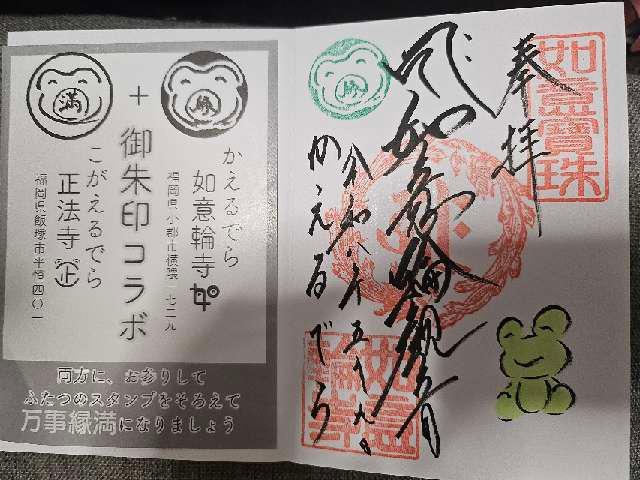 如意寶珠
奉拝
如意輪観音
かえるでら
如意輪寺
かえるでら
如意輪寺
福岡県小郡市横隈一七二九
+
御朱印コラボ
満
こがえるでら
正法寺
福岡県飯塚市平恒四〇一
両方に、お参りして
ふたつのスタンプをそろえて
万事縁満になりましょう